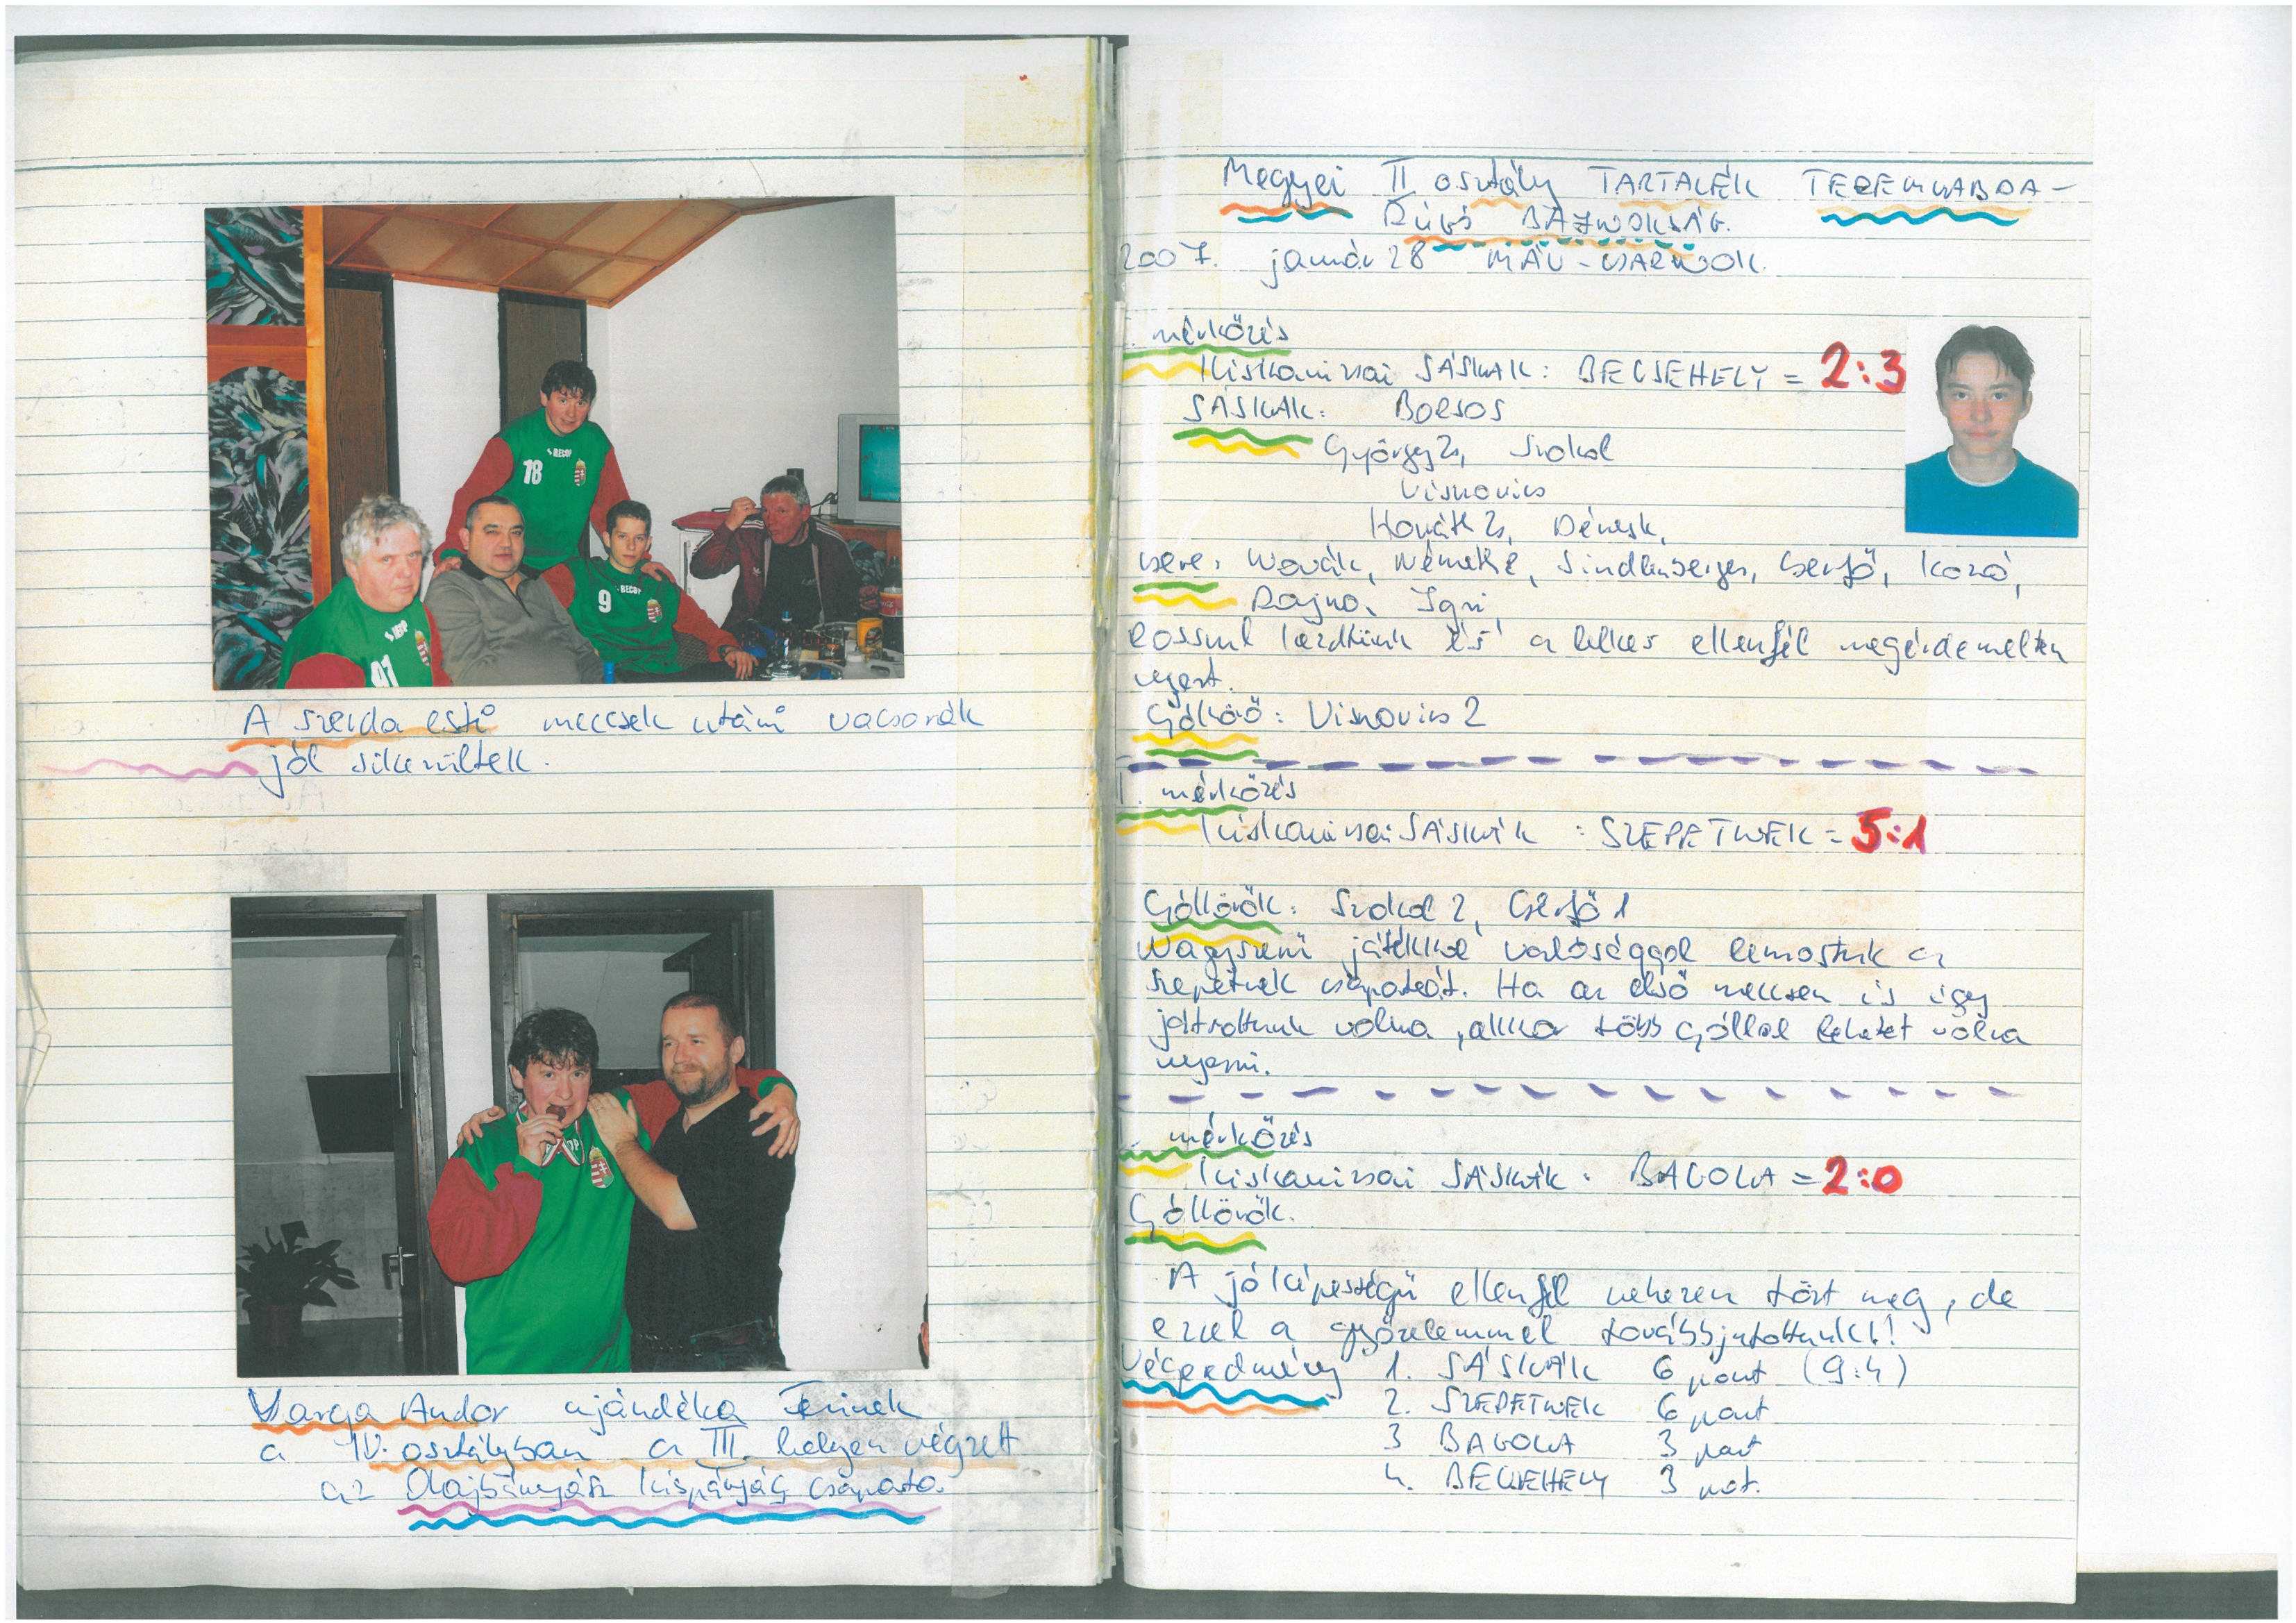 18
BECOP
9
BECOP
41
A szerda esti meccsek utáni vacsorák
jól sikerültek.
Varga Andor ajándéka Ferinek
a IV. osztályban a III. helyen végzet
az Olajbányász kispályás csapata.
Megyei II osztály TARTALÉK TEREMLABDA-
RÚGÓ BAJNOKSÁG.
2007. január 28 MÁV-CSARNOK.
. mérkőzés
Kiskanizsai SÁSKÁK : BECSEHELY = 2:3
SÁSKÁK: BORSOS
György Zs, Szokol
Visnovics
Horváth Zs, Dénes K,
csere: Novák, Németh, Sindlenberger, Cserfő, Kozó,
Rajnó, Igri
Rosszul kezdtünk és a lelkes ellenfél megérdemelten
nyert.
Góllövő: Visnovics 2
I. mérkőzés
Kiskanizsai SÁSKÁK : SZEPETNEK = 5:1
Góllövők: Szokol 2, Cserfő 1
Nagyszerű játékkal valósággal lemostuk a
Szepetnek csapatát. Ha az első meccsen is így
játszottunk volna, akkor több góllal lehetet volna
nyerni.
. mérkőzés
Kiskanizsai SÁSKÁK : BAGOLA = 2:0
Góllövők.
A jó képességű ellenfél nehezen tört meg, de
ezzel a győzelemmel továbbjutottunk!!
Végeredmény 1. SÁSKÁK 6 pont (9:4)
2. SZEPETNEK 6 pont
3 BAGOLA 3 pont
4. BECSEHELY 3 pont.